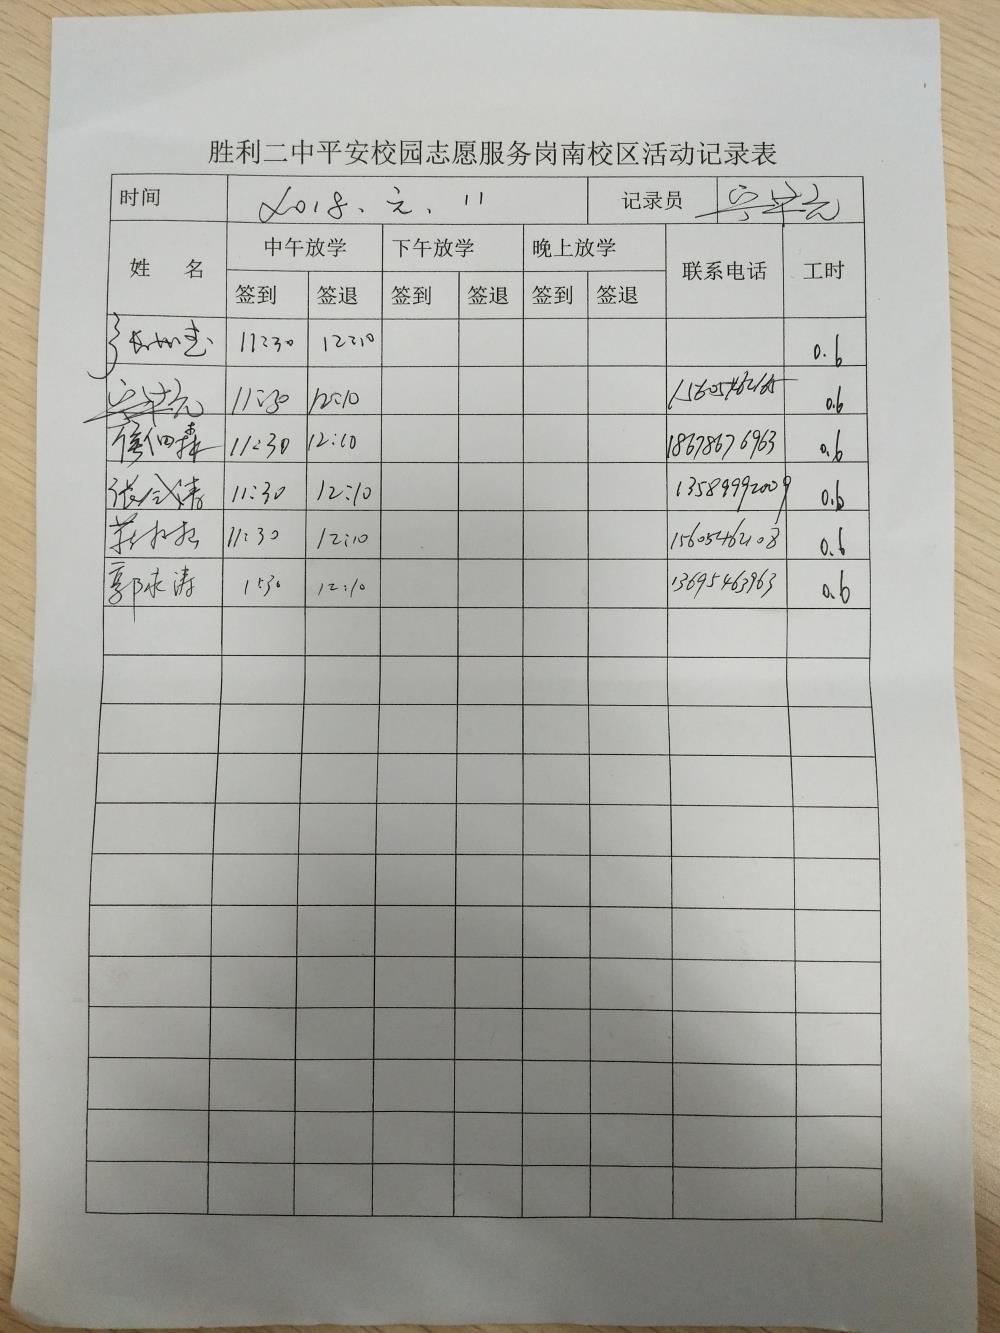 胜利二中平安校园志愿服务岗南校区活动记录表
时间 2018、元、11 记录员
姓 名 中午放学 下午放学 晚上放学 联系电话 工时
签到 签退 签到 签退 签到 签退
11:30 12:10 0.6
11:30 12:10 0.6
侯伯森 11:30 12:10 18678676963 0.6
11:30 12:10 13589992009 0.6
11:30 12:10 15605462108 0.6
郭永涛 1:30 12:10 13695463963 0.6